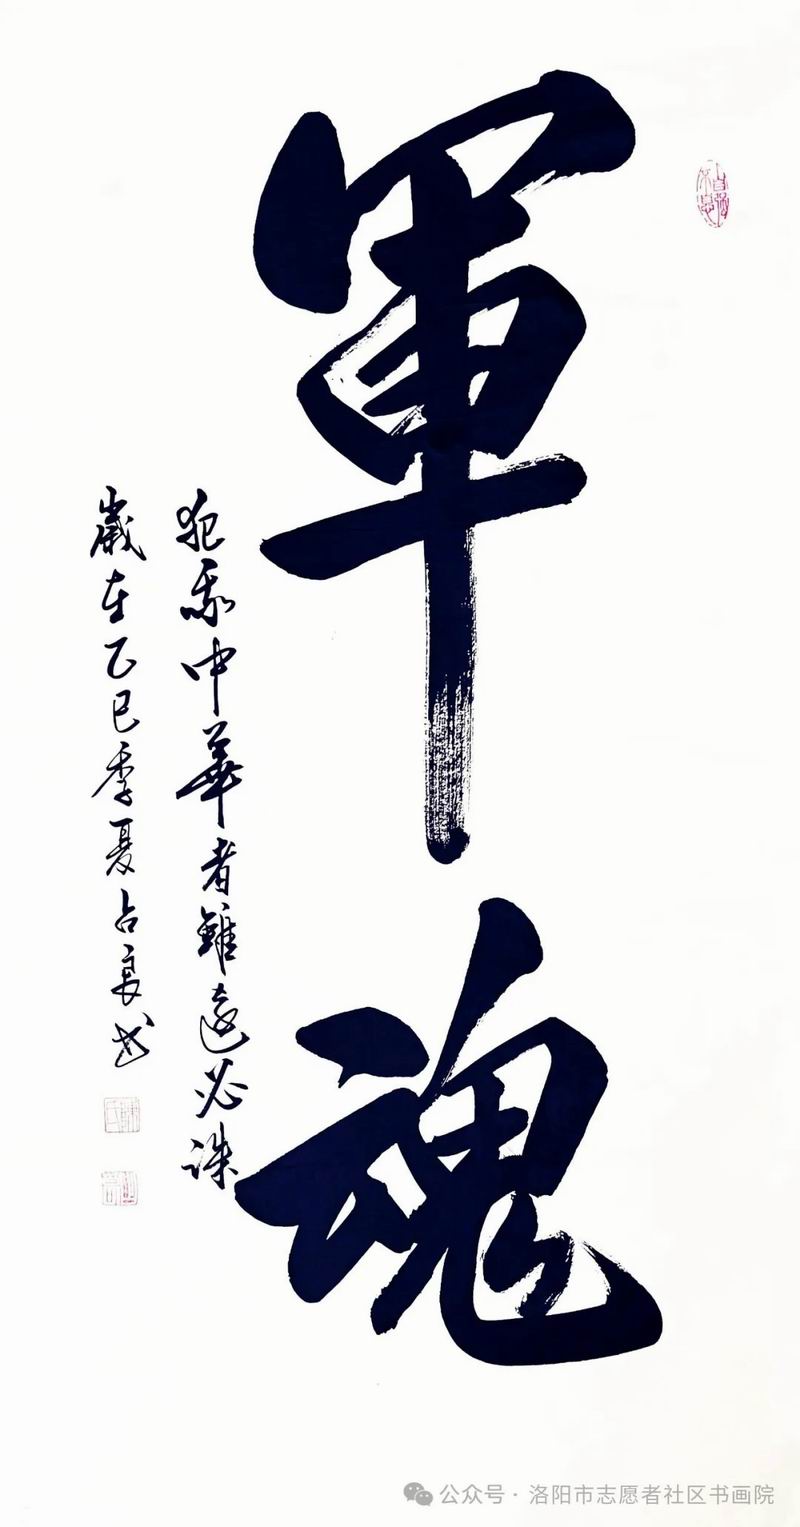 軍魂
犯我中華者雖遠必誅
歲在乙巳季夏占良书
自强不息
公众号·洛阳市志愿者社区书画院